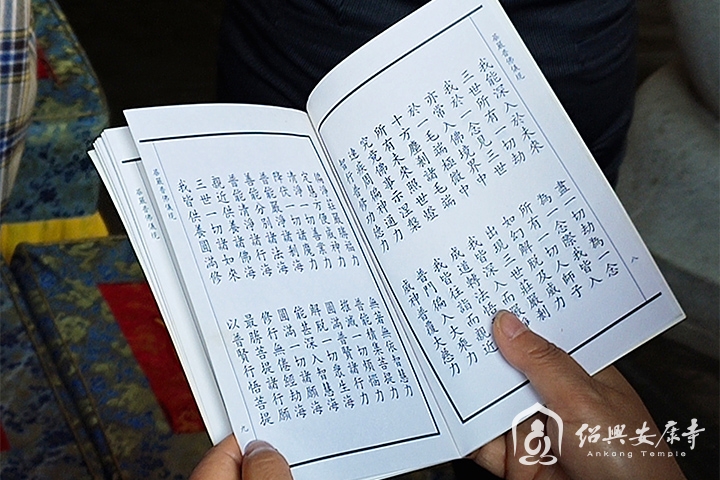 我能深入於未來 盡一切劫為一念
三世所有一切劫 為一念際我皆入
我於一念見三世 所有一切人師子
亦常入佛境界中 如幻解脫及威力
於一毛端極微中 出現三世莊嚴剎
十方塵剎諸毛端 我皆深入而嚴
所有未來照世燈 成道轉法悟
究竟佛事示涅槃 我皆往詣而親近
速疾周遍神通力 普門遍入大乘力
智行普修功德力 威神普覆大慈力
八
遍淨莊嚴勝福力 無著無依智慧力
定慧方便威神力 普能積集菩提力
清淨一切善業力 摧滅一切煩惱力
降伏一切諸魔力 圓滿普賢諸行力
普能嚴淨諸剎海 解脫一切眾生海
善能分別諸法海 能甚深入智慧海
普能清淨諸行海 圓滿一切諸願海
親近供養諸佛海 修行無倦經劫海
三世一切諸如來 最勝菩提諸行願
我皆供養圓滿修 以普賢行悟菩提
九
紹興安康寺
Ankang Temple